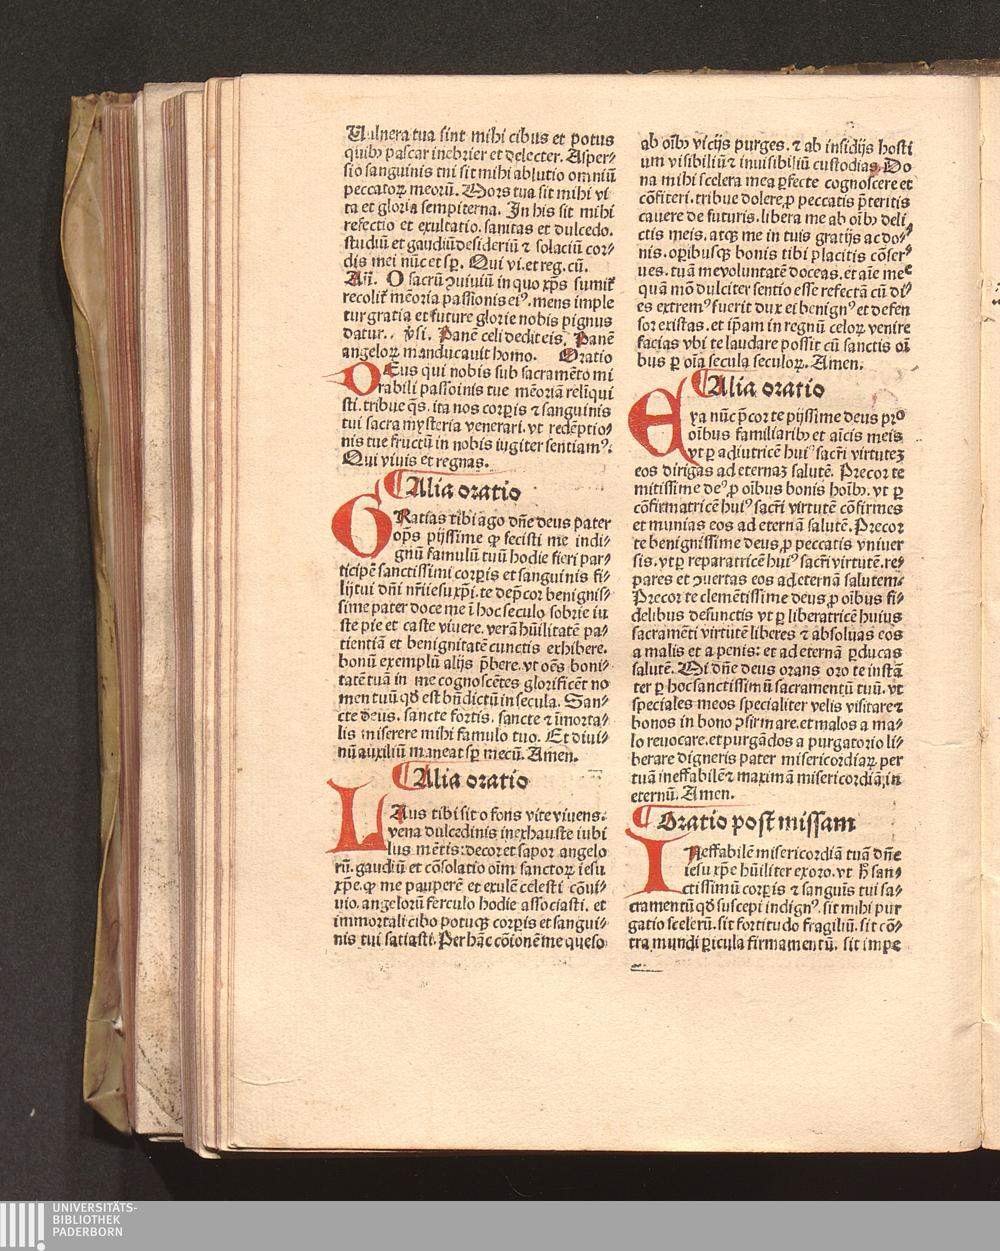 Vulnera tua sint mihi cibus et potus
quibꝫ pascar inebrier et delecter. Asper⸗
sio sanguinis tui sit mihi ablutio omniū
peccatoꝝ meorū. Mors tua sit mihi vi
ta et gloria sempiterna. In his sit mihi
refectio et exultatio. sanitas et dulcedo.
studiū et gaudiū desideriū ⁊ solaciū cor⸗
dis mei nūc et sꝑ. Qui vi. et reg. cū.
Añ. O sacrū ꝯuiuiū in quo xp̄s sumit᷑
recolit᷑ mēoria passionis eiꝰ. mens imple
tur gratia et future glorie nobis pignus
datur. v̄si. Panē celi dedit eis. Panē
angeloꝝ manducauit homo. Oratio
DEus qui nobis sub sacramēto mi
rabili passoinis tue mēoriā reliqui
sti. tribue q̄s. ita nos corꝑis ⁊ sanguinis
tui sacra mysteria venerari. vt redēptio⸗
nis tue fructū in nobis iugiter sentiamꝰ.
Qui viuis et regnas.
¶ Alia oratio
GRatias tibi ago dn̄e deus pater
op̄s pijssime ꝙ fecisti me indi⸗
gnū famulū tuū hodie fieri par⸗
ticipē sanctissimi corꝑis et sanguinis fi⸗
lij tui dn̄i nr̄i iesu xp̄i. te dep̄cor benignis⸗
sime pater doce me ī hoc seculo sobrie iu
ste pie et caste viuere. verā hūilitatē pa⸗
tientiā et benignitatē cunctis exhibere.
bonū exemplū alijs p̄bere. vt oēs boni⸗
tatē tuā in me cognoscētes glorificēt no
men tuū qd̄ est bn̄dictū in secula. San⸗
cte deus. sancte fortis. sancte ⁊ īmorta⸗
lis miserere mihi famulo tuo. Et diui⸗
nū auxiliū maneat sꝑ mecū. Amen.
¶ Alia oratio
LAus tibi sit o fons vite viuens.
vena dulcedinis inexhauste iubi
lus mētis: decor et sapor angelo
rū. gaudiū et cōsolatio oīm sanctoꝝ iesu
xp̄e. ꝙ me pauperē et exulē celesti cōui⸗
uio. angelorū ferculo hodie associasti. et
immortali cibo potuqꝫ corꝑis et sangui⸗
nis tui satiasti. Per hāc cōionē me queso
ab oībꝫ vicijs purges. ⁊ ab insidijs hosti
um visibiliū ⁊ inuisibiliū custodias. Do
na mihi scelera mea ꝑfecte cognoscere et
cōfiteri. tribue dolere ꝓ peccatis p̄teritis
cauere de futuris. libera me ab oībꝫ deli
ctis meis. atqꝫ me in tuis gratijs ac do⸗
nis. oꝑibusqꝫ bonis tibi placitis cōser⸗
ues. tuā me voluntatē doceas. et aīe me
quā mō dulciter sentio esse refectā cū di⸗
es extremꝰ fuerit dux ei benignꝰ et defen
sor existas. et ip̄am in regnū celoꝝ venire
facias vbi te laudare possit cū sanctis oī
bus ꝑ oīa secula seculoꝝ. Amen.
¶ Alia oratio
EYa nūc p̄cor te pijssime deus pro
oībus familiaribꝫ et aīcis meis
vt ꝑ adiutricē huiꝰ sacr̄i virtutez
eos dirigas ad eternaz salutē. Precor te
mitissime deꝰ ꝓ oībus bonis hoībꝫ. vt ꝑ
cōfirmatricē huiꝰ sacr̄i virtutē cōfirmes
et munias eos ad eternā salutē. Precor
te benignissime deus ꝓ peccatis vniuer
sis. vt ꝑ reparatricē huiꝰ sacr̄i virtutē. re⸗
pares et ꝯuertas eos ad eternā salutem.
Precor te clemētissime deus ꝓ oībus fi⸗
delibus defunctis vt ꝑ liberatricē huius
sacramēti virtutē liberes ⁊ absoluas eos
a malis et a penis: et ad eternā ꝑducas
salutē. Mi dn̄e deus orans oro te instā
ter ꝑ hoc sanctissimū sacramentū tuū. vt
speciales meos specialiter velis visitare ⁊
bonos in bono ꝯfirmare. et malos a ma⸗
lo reuocare. et purgādos a purgatorio li⸗
berare digneris pater misericordiaꝝ per
tuā ineffabilē ⁊ maximā misericordiā in
eternū. Amen.
¶ Oratio post missam
INeffabilē misericordiā tuā dn̄e
iesu xp̄e hūiliter exoro. vt h̄ san⸗
ctissimū corꝑis ⁊ sanguis tui sa⸗
cramentū qd̄ suscepi indignꝰ. sit mihi pur
gatio scelerū. sit fortitudo fragiliū. sit cō⸗
tra mundi ꝑicula firmamentū. sit impe
UNIVERSITÄTS-
BIBLIOTHEK
PADERBORN